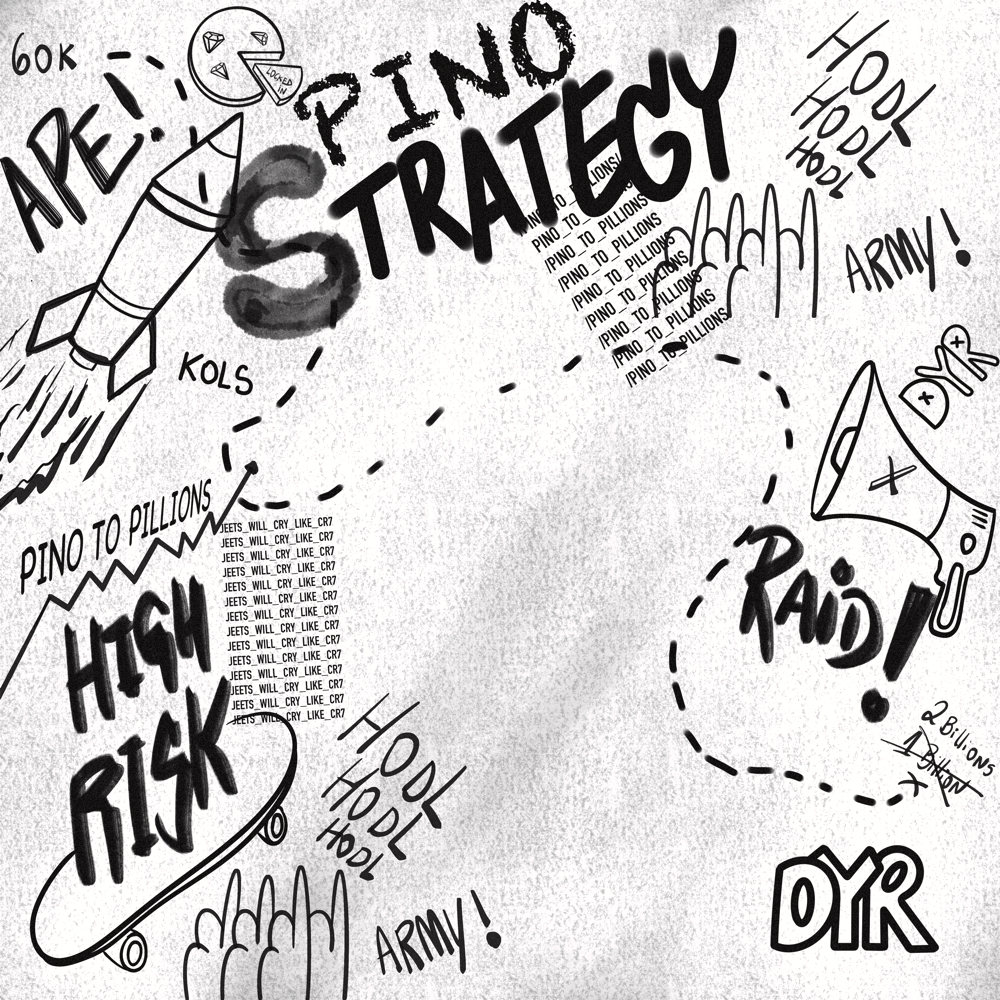 60K
APE!
LOCKED
IN
PINO
STRATEGY
HODL
HODL
HODL
ARMY!
PINO_TO_PILLIONS/
/PINO_TO_PILLIONS
/PINO_TO_PILLIONS
/PINO_TO_PILLIONS
/PINO_TO_PILLIONS
/PINO_TO_PILLIONS
/PINO_TO_PILLIONS
/PINO_TO_PILLIONS
/PINO_TO_PILLIONS
KOLS
DYR
X
PINO TO PILLIONS
JEETS_WILL_CRY_LIKE_CR7
JEETS_WILL_CRY_LIKE_CR7
JEETS_WILL_CRY_LIKE_CR7
JEETS_WILL_CRY_LIKE_CR7
JEETS_WILL_CRY_LIKE_CR7
JEETS_WILL_CRY_LIKE_CR7
JEETS_WILL_CRY_LIKE_CR7
JEETS_WILL_CRY_LIKE_CR7
JEETS_WILL_CRY_LIKE_CR7
JEETS_WILL_CRY_LIKE_CR7
JEETS_WILL_CRY_LIKE_CR7
JEETS_WILL_CRY_LIKE_CR7
JEETS_WILL_CRY_LIKE_CR7
JEETS_WILL_CRY_LIKE_CR7
HIGH
RISK
RAiD!
2 BilliONS
1 BilliON
X
HODL
HODL
HODL
ARMY!
DYR